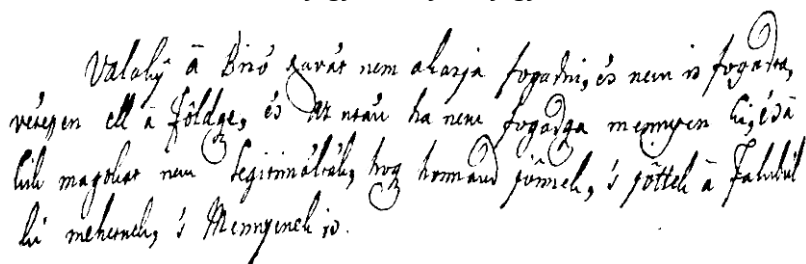 Valaky â Biró szavát nem akarja fogadni, és nem is fogadta,
vétessen ell â földgye, és az után ha nem fogadgya mennyen ki, és â
kik magokat nem legitimálták, hogy honnand jönnek, 's jöttek â Faluból
ki mehetnek, 's Mennyenek is.